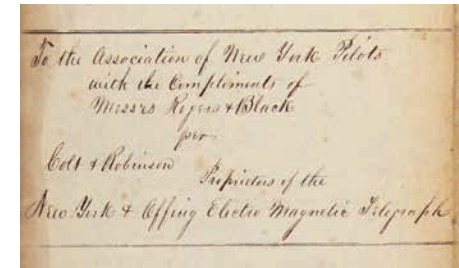 To the Association of New York Pilots
with the Compliments of
Messrs Rogers & Black
per
Colt & Robinson
Proprietors of the
New York & Offing Electro Magnetic Telegraph